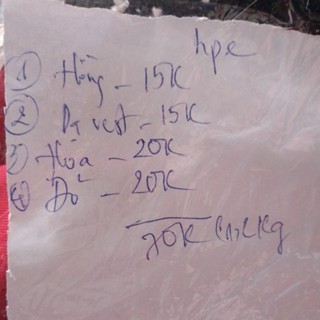 hpe
① Hồng - 15K
② Dạ vest - 15K
③ Hòa - 20K
④ Đỏ - 20K
70K